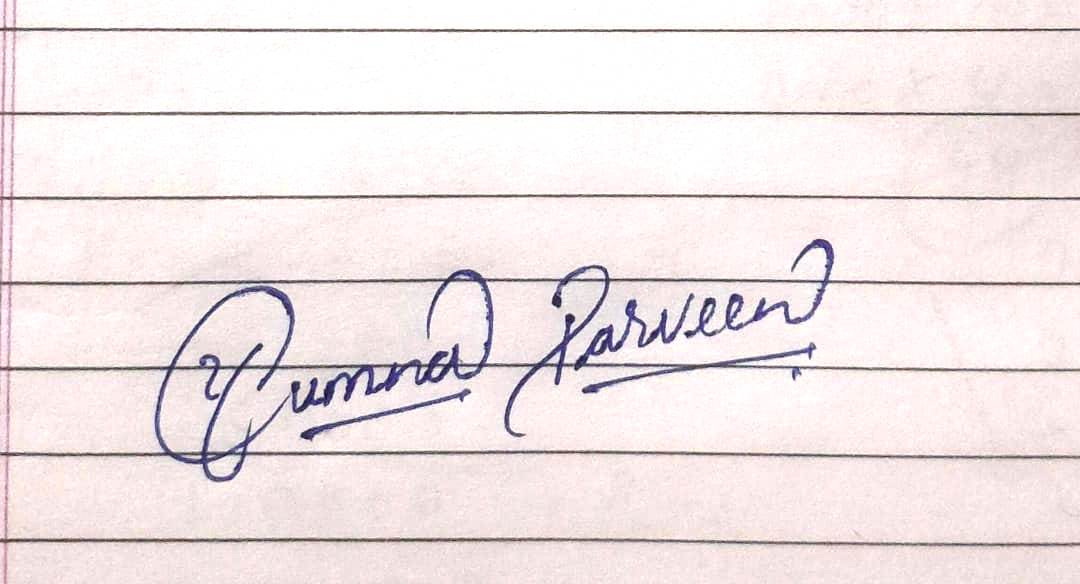 Yumna Parveen